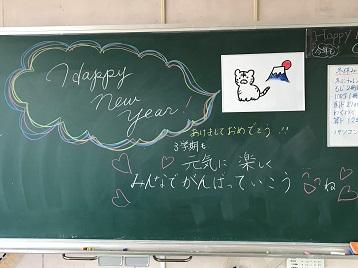 Happy
new
year!
あけましておめでとう!!
3学期も
元気に 楽しく
みんなでがんばっていこうね
Happy